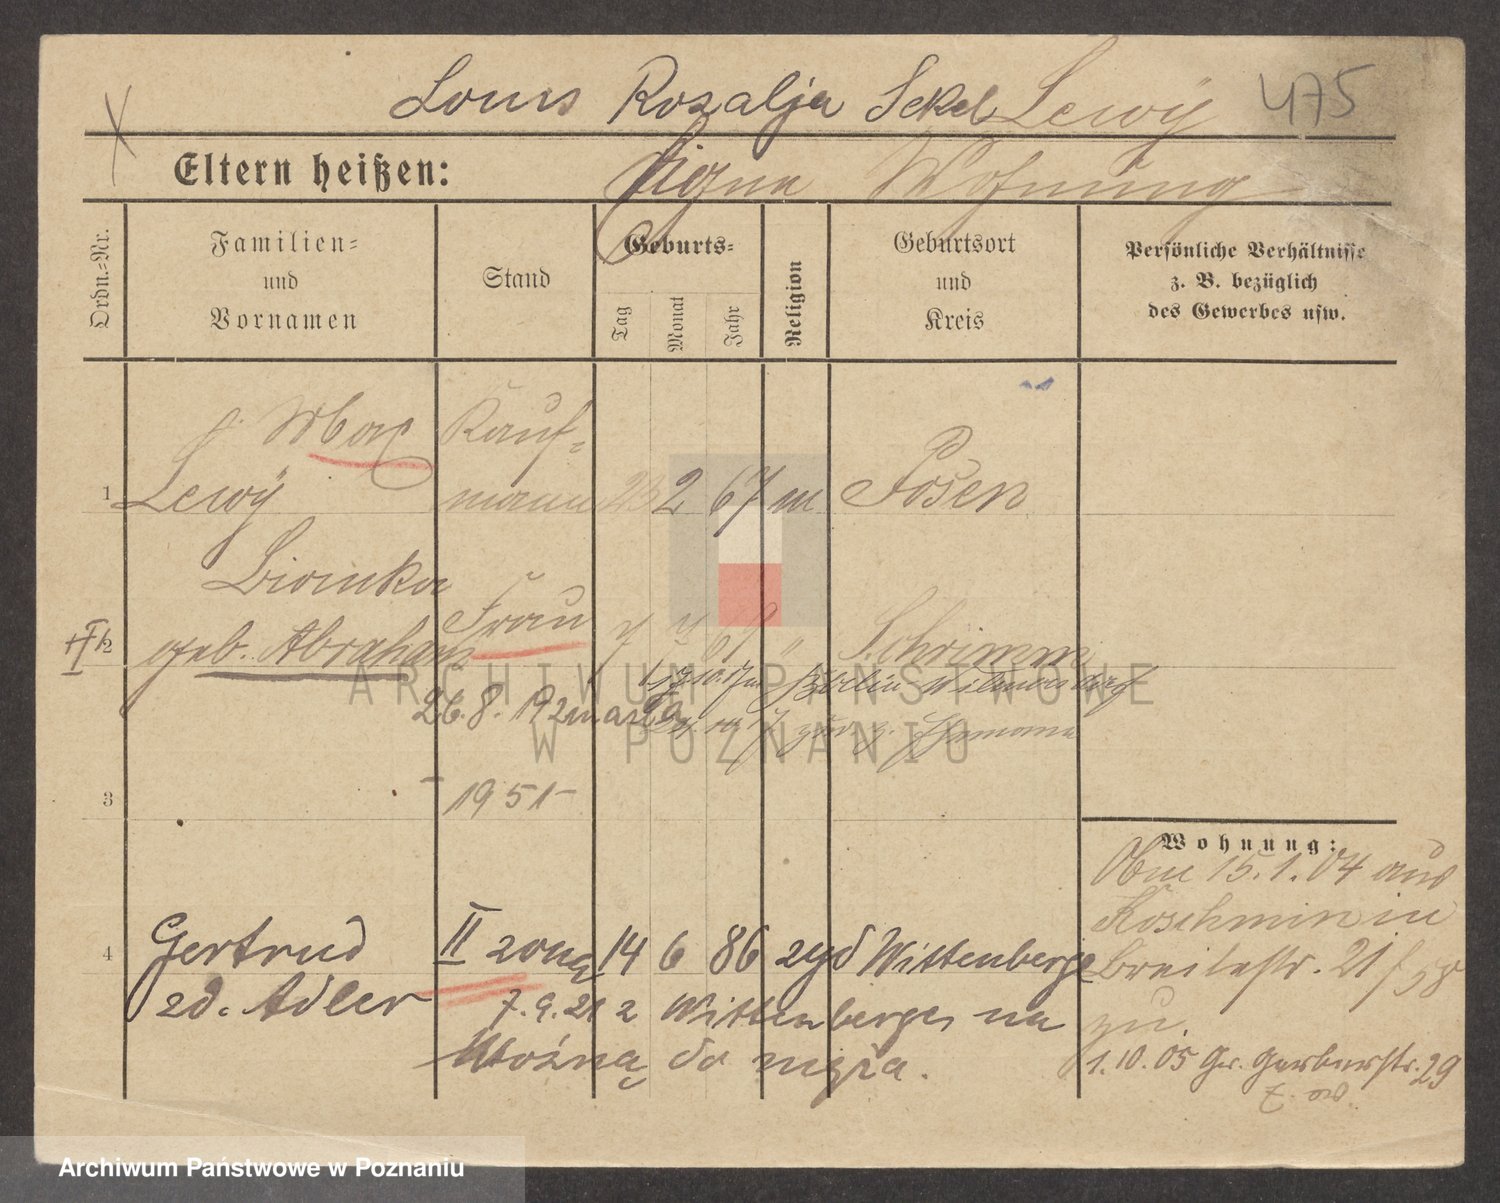 Louis Rozalja Sekel Lewÿ 475
Eltern heißen: Eigne Wohnung
Ordn.-Nr.
Familien-
und
Vornamen
Stand
Geburts-
Tag
Monat
Jahr
Religion
Geburtsort
und
Kreis
Persönliche Verhältnisse
z. B. bezüglich
des Gewerbes usw.
Max Kauf-
1 Lewÿ mann 23 2 67 m. Posen
Bianka
Frau
2 geb. Abraham " Schrimm
Berlin Wilmersdorf
26.8.19 zmarła
3 - 1951 -
Wohnung:
15.1.04 aus
Koschmin in
4 Gertrud II żona 14 6 86 żyd Wittenberge Breitestr. 21
zd. Adler 7.9.21 z Wittenberge, na zu.
Woźną do męża.
1.10.05 Gr. Gerberstr. 29
Archiwum Państwowe w Poznaniu
W POZNANIU
Archiwum Państwowe w Poznaniu